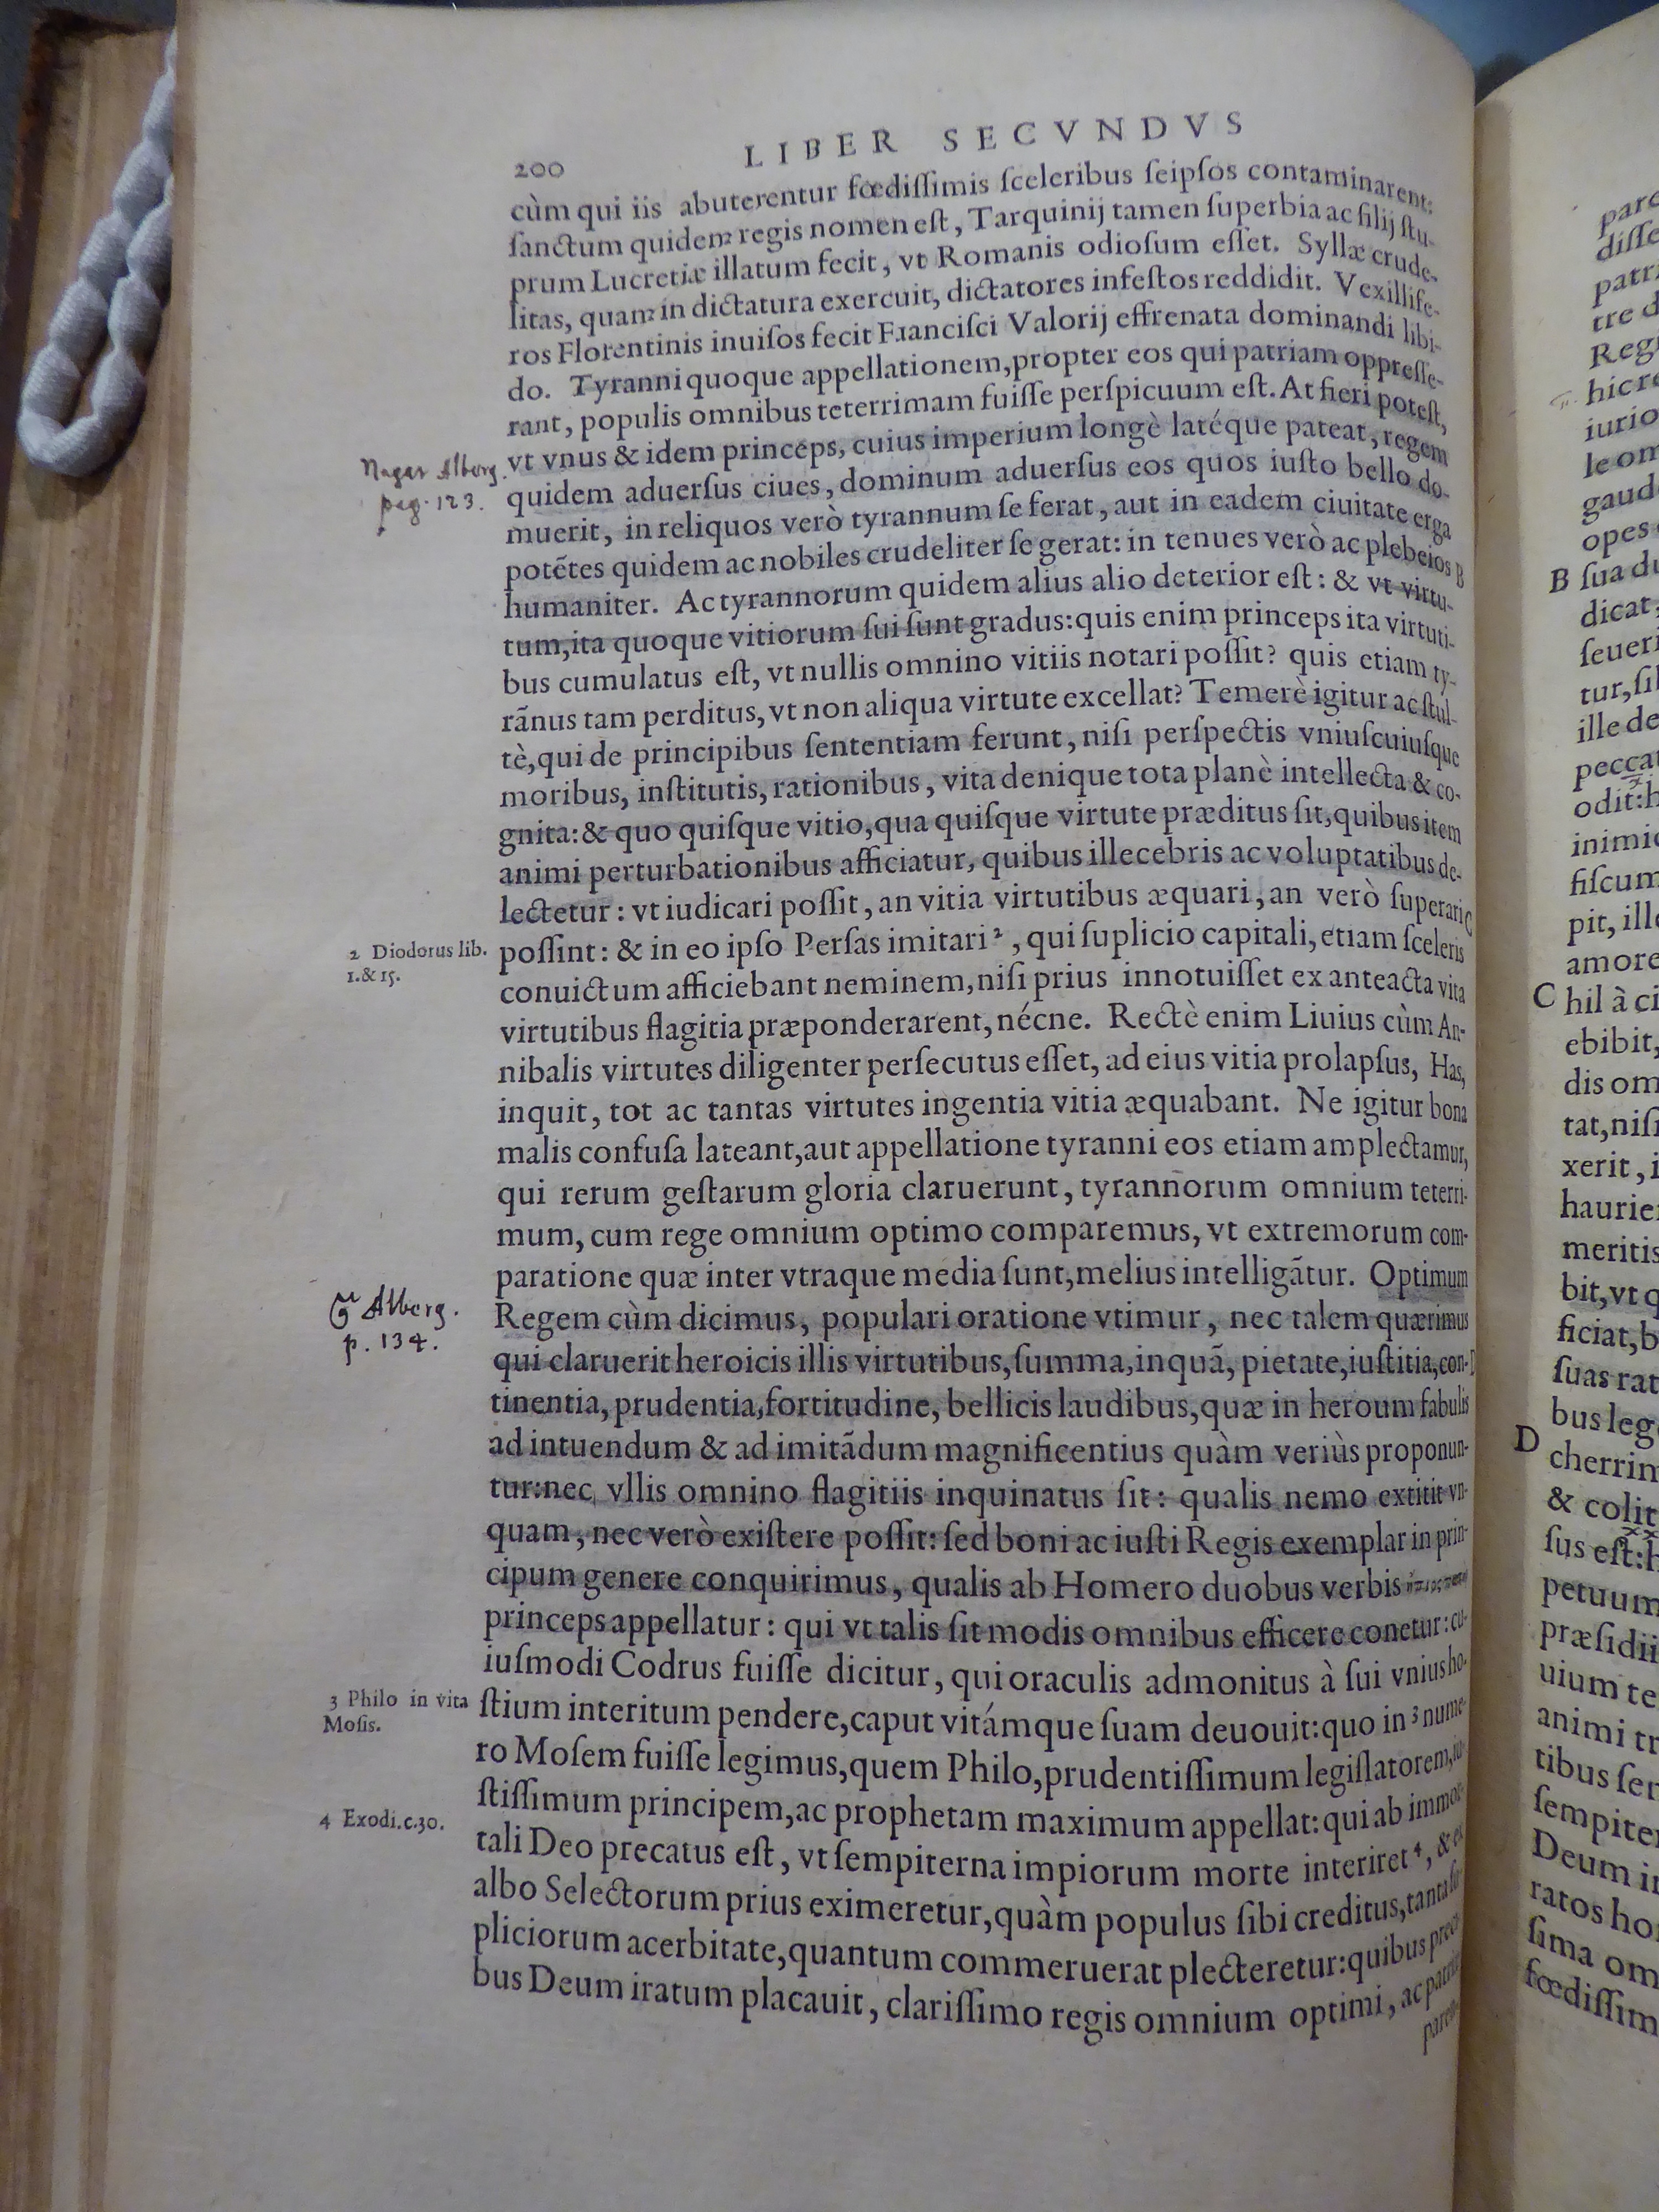 200 LIBER SECVNDVS
cùm qui iis abuterentur fœdiſſimis ſceleribus ſeipſos contaminarent:
ſanctum quidem regis nomen eſt, Tarquinij tamen ſuperbia ac filij ſtu-
prum Lucretiæ illatum fecit, vt Romanis odioſum eſſet. Syllæ crude-
litas, quam in dictatura exercuit, dictatores infeſtos reddidit. Vexillife-
ros Florentinis inuiſos fecit Franciſci Valorij effrenata dominandi libi-
do. Tyranni quoque appellationem, propter eos qui patriam oppreſſe-
rant, populis omnibus teterrimam fuiſſe perſpicuum eſt. At fieri poteſt,
vt vnus & idem princeps, cuius imperium longè latéque pateat, regem
quidem aduerſus ciues, dominum aduerſus eos quos iuſto bello do-
muerit, in reliquos verò tyrannum ſe ferat, aut in eadem ciuitate erga
potẽtes quidem ac nobiles crudeliter ſe gerat: in tenues verò ac plebeios B
humaniter. Ac tyrannorum quidem alius alio deterior eſt: & vt virtu-
tum, ita quoque vitiorum ſui ſunt gradus: quis enim princeps ita virtuti-
bus cumulatus eſt, vt nullis omnino vitiis notari poſſit? quis etiam ty-
rãnus tam perditus, vt non aliqua virtute excellat? Temerè igitur ac ſtul-
tè, qui de principibus ſententiam ferunt, niſi perſpectis vniuſcuiuſque
moribus, inſtitutis, rationibus, vita denique tota planè intellecta & co-
gnita: & quo quiſque vitio, qua quiſque virtute præditus ſit, quibus item
animi perturbationibus afficiatur, quibus illecebris ac voluptatibus de-
lectetur: vt iudicari poſſit, an vitia virtutibus æquari, an verò ſuperari C
poſſint: & in eo ipſo Perſas imitari ², qui ſuplicio capitali, etiam ſceleris
conuictum afficiebant neminem, niſi prius innotuiſſet ex anteacta vita
virtutibus flagitia præponderarent, nécne. Rectè enim Liuius cùm An-
nibalis virtutes diligenter perſecutus eſſet, ad eius vitia prolapſus, Has,
inquit, tot ac tantas virtutes ingentia vitia æquabant. Ne igitur bona
malis confuſa lateant, aut appellatione tyranni eos etiam amplectamur,
qui rerum geſtarum gloria claruerunt, tyrannorum omnium teterri-
mum, cum rege omnium optimo comparemus, vt extremorum com-
paratione quæ inter vtraque media ſunt, melius intelligãtur. Optimum
Regem cùm dicimus, populari oratione vtimur, nec talem quærimus
qui claruerit heroicis illis virtutibus, ſumma, inquã, pietate, iuſtitia, con- D
tinentia, prudentia, fortitudine, bellicis laudibus, quæ in heroum fabulis
ad intuendum & ad imitãdum magnificentius quàm veriùs proponun-
tur: nec vllis omnino flagitiis inquinatus ſit: qualis nemo extitit vn-
quam, nec verò exiſtere poſſit: ſed boni ac iuſti Regis exemplar in prin-
cipum genere conquirimus, qualis ab Homero duobus verbis
princeps appellatur: qui vt talis ſit modis omnibus efficere conetur: cu-
iuſmodi Codrus fuiſſe dicitur, qui oraculis admonitus à ſui vnius ho-
ſtium interitum pendere, caput vitámque ſuam deuouit: quo in ³ nume-
ro Moſem fuiſſe legimus, quem Philo, prudentiſſimum legiſlatorem, iu-
ſtiſſimum principem, ac prophetam maximum appellat: qui ab immor-
tali Deo precatus eſt, vt ſempiterna impiorum morte interiret ⁴, & ex
albo Selectorum prius eximeretur, quàm populus ſibi creditus, tanta ſup-
pliciorum acerbitate, quantum commeruerat plecteretur: quibus preci-
bus Deum iratum placauit, clariſſimo regis omnium optimi, ac patriæ
paren-
Alberg.
pag. 123.
2 Diodorus lib.
1. & 15.
Alberg.
p. 134.
3 Philo in vita
Moſis.
4 Exodi. c. 30.
patri
tre d
hic re
iurio
le om
gaud
opes
B ſua du
dicat,
ſeueri
ille de
peccat
odit: h
inimic
fiſcum
pit, ille
amore
C hil à ci
ebibit,
dis om
tat, niſi
xerit, i
haurie
meritis
bit, vt q
ficiat, b
ſuas rat
bus leg
D cherrim
& colit
ſus eſt: h
petuum
præſidii
uium te
animi tr
tibus ſer
ſempiter
Deum in
ratos ho
ſima om
fœdiſſim